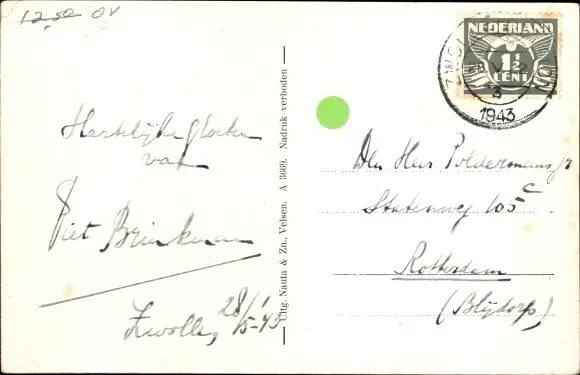 12.50 OV
Hartelijke groeten
van
Piet Brinkman
Zwolle, 28/5-'43
Uitg. Nauta & Zn., Velsen. A 3669. Nadruk verboden
NEDERLAND
1½
CENT
ZWOLLE
1943
Den Heer Poldermans jr
Statenweg 105c
Rotterdam
(Blijdorp)